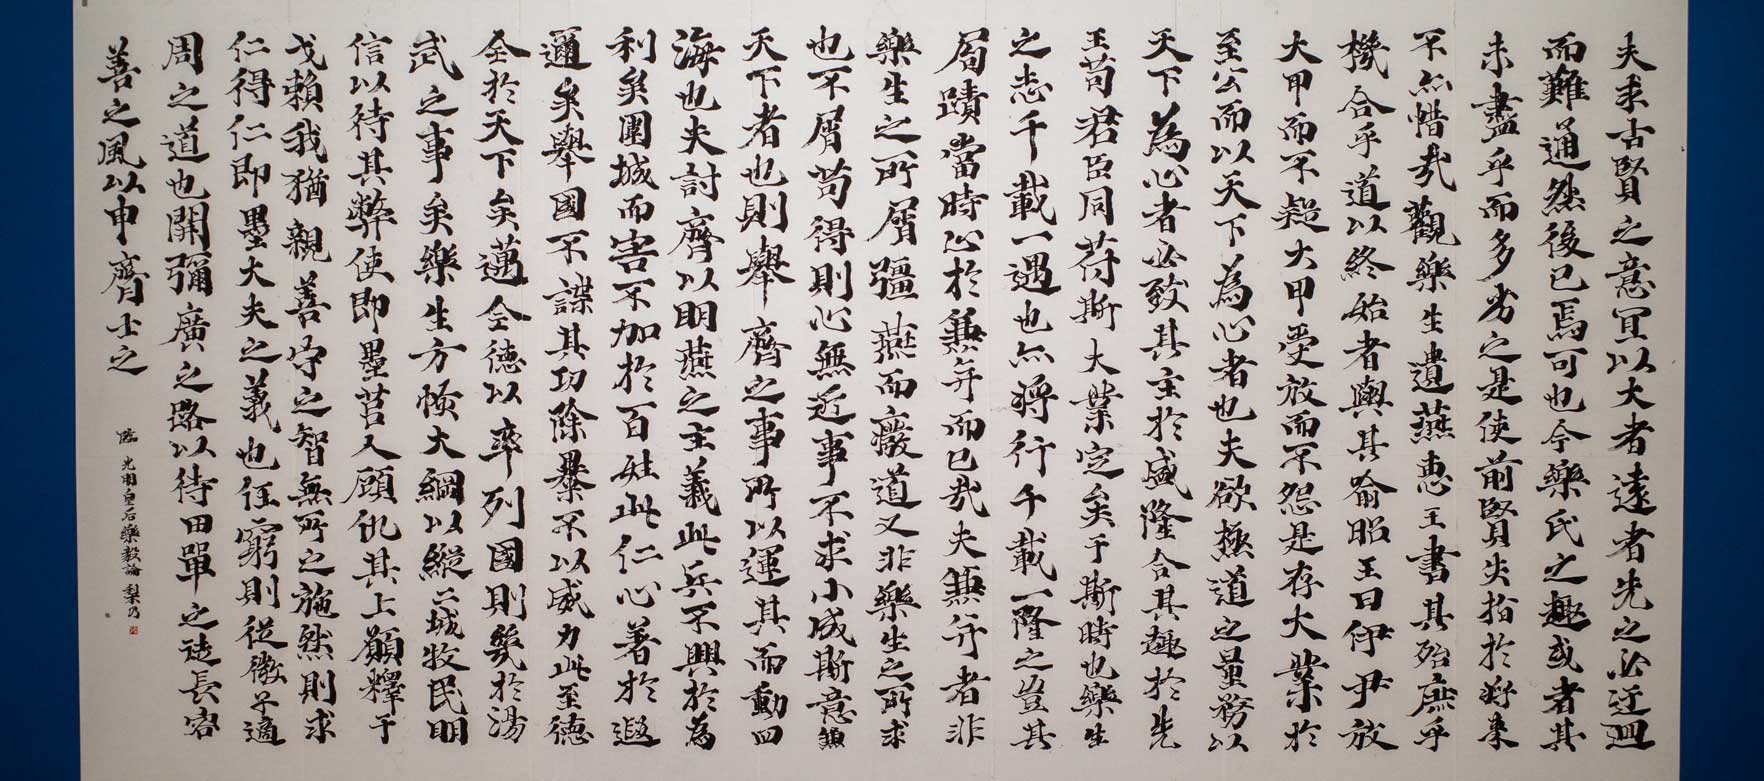 夫求古賢之意冝以大者遠者先之必迂迴
而難通然後已焉可也今樂氏之趣或者其
未盡乎而多劣之是使前賢失指於将来
不亦惜哉觀樂生遺燕惠王書其殆庶乎
機合乎道以終始者與其喻昭王曰伊尹放
大甲而不疑大甲受放而不怨是存大業於
至公而以天下為心者也夫欲極道之量務以
天下為心者必致其主於盛隆合其趣於先
王苟君臣同苻斯大業定矣于斯時也樂生
之志千載一遇也亦将行千載一隆之豈其
局蹟當時止於兼并而已哉夫兼并者非
樂生之所屑彊燕而癈道又非樂生之所求
也不屑苟得則心無近事不求小成斯意兼
天下者也則舉齊之事所以運其而動四
海也夫討齊以明燕之主義此兵不興於為
利矣圍城而害不加於百姓此仁心著於遐
邇矣舉國不謀其功除暴不以威力此至德
全於天下矣邁全德以率列國則幾於湯
武之事矣樂生方恢大綱以縱二城牧民明
信以待其弊使即墨莒人顧仇其上願釋干
戈賴我猶親善守之智無所之施然則求
仁得仁即墨大夫之義也任窮則從微子適
周之道也開彌廣之路以待田單之徒長容
善之風以申齊士之
臨 光明皇后樂毅論 梨乃